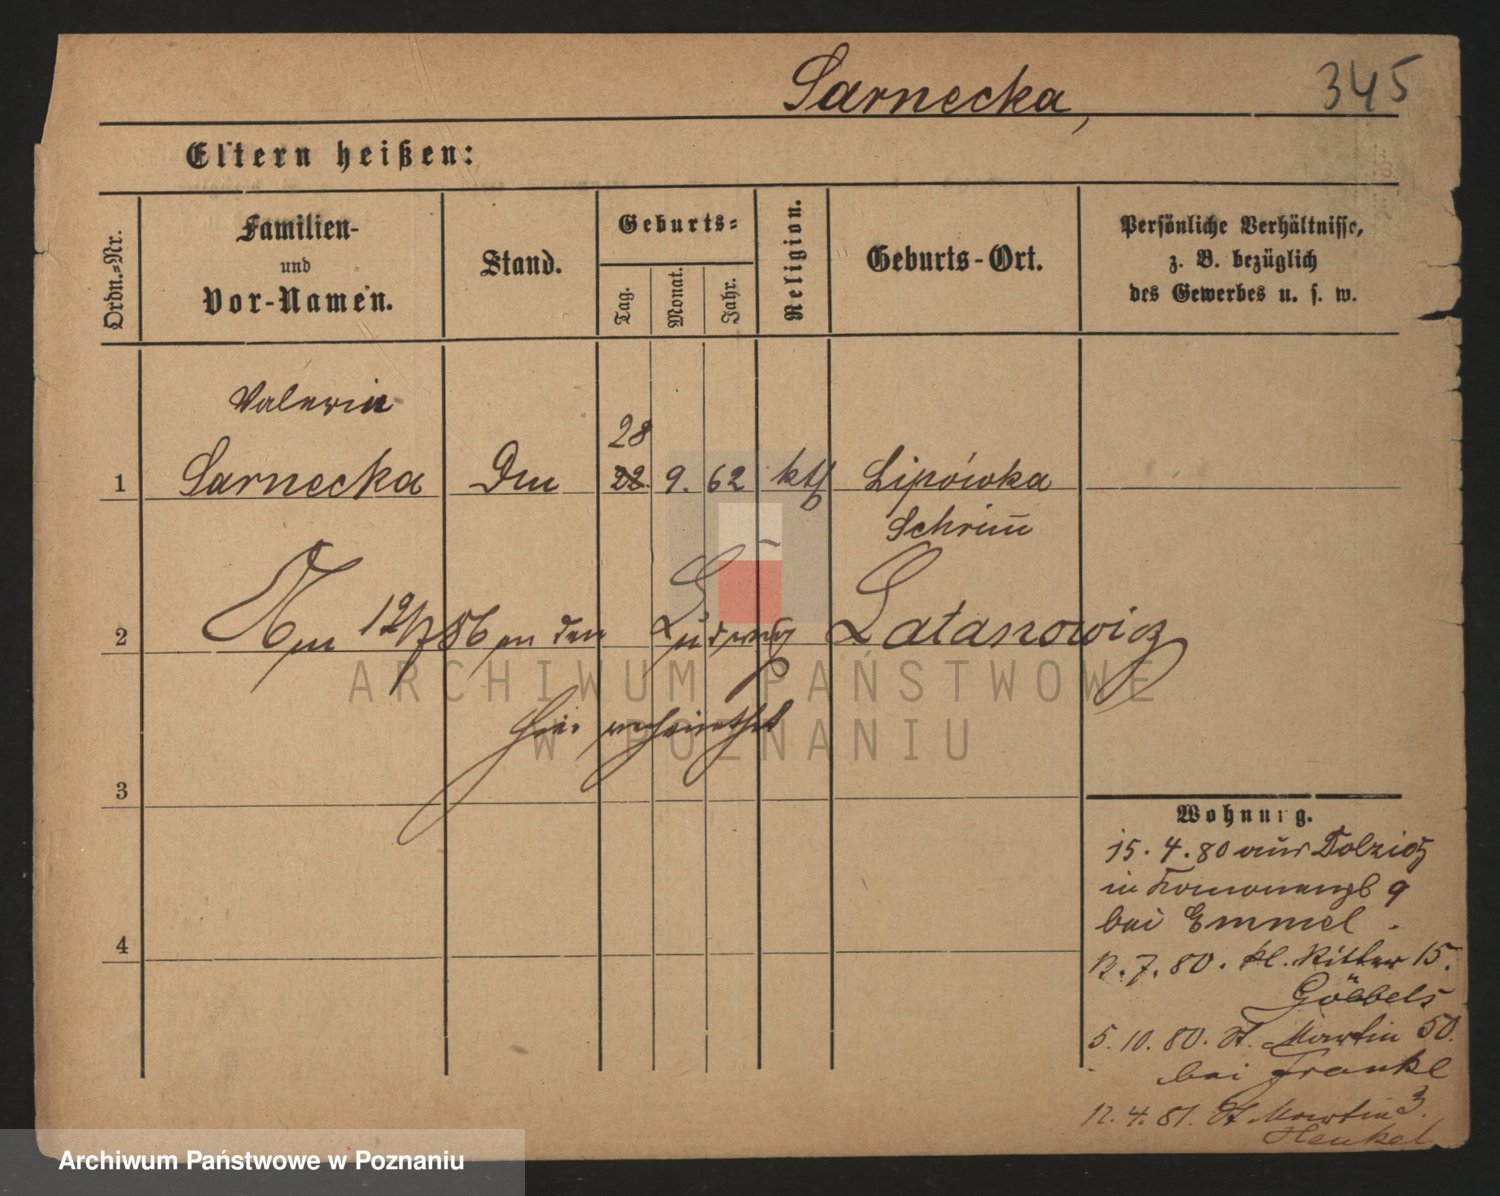 Sarnecka, 345
Eltern heißen:
Ordn.=Nr.
Familien-
und
Vor-Namen.
Stand.
Geburts=
Tag.
Monat.
Jahr.
Religion.
Geburts-Ort.
Persönliche Verhältnisse,
z. B. bezüglich
des Gewerbes u. s. w.
Valeria
28
1 Sarnecka 22. 9. 62 kth Lipówka
Schrim̄
2 Am 12/7 86 an den Ludwig Latanowicz
hier verheirathet
3
4
Wohnung.
15. 4. 80 aus Dolzig
in 9
bei Emmel.
12. 7. 80. kl. Ritter 15.
Göbbels
5. 10. 80. St. Martin 50.
bei Frankl
12. 4. 81. St Martin 3.
Henkel
ARCHIWUM PAŃSTWOWE
W POZNANIU
Archiwum Państwowe w Poznaniu